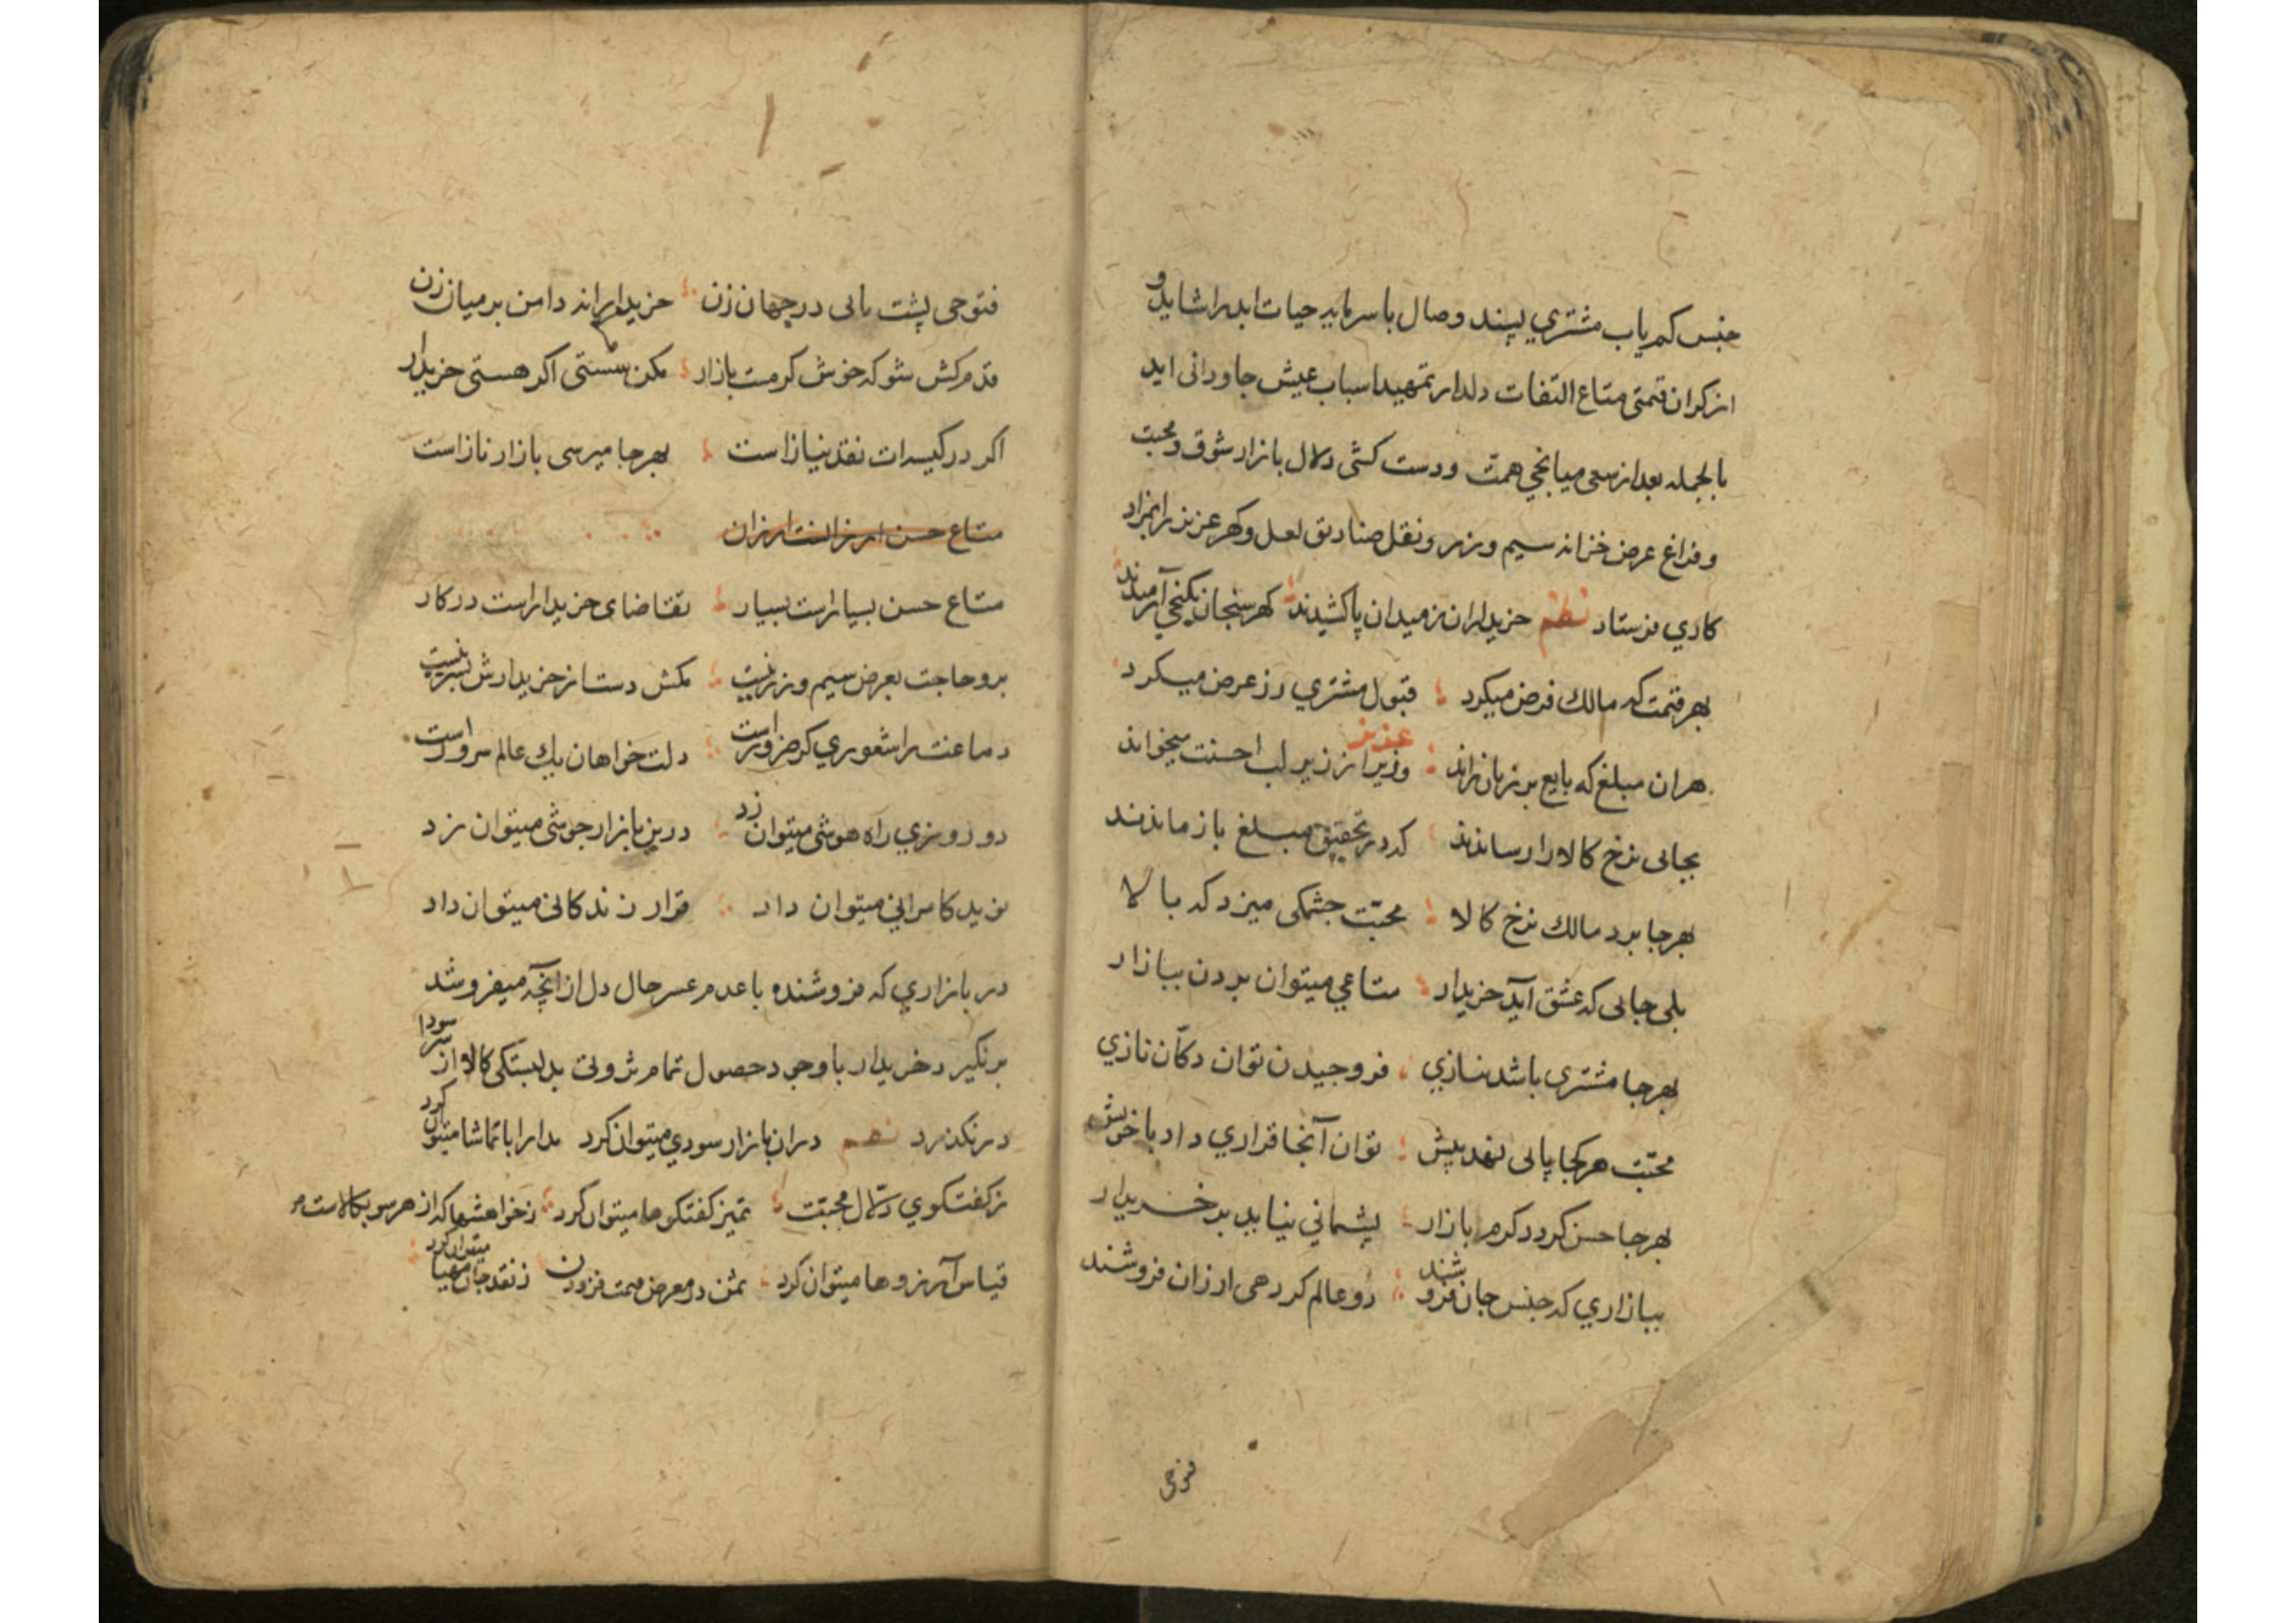 جنس کم یاب مشتري پسند وصال با سرمایه حیات ابد را شاید و
از کران قیمتی متاع التفات دلدار تمهید اسباب عیش جاودانی اید
بالجمله بعد از سعی میانجي همت ودست کشی دلال بازار شوق ومحبت
و فراغ عرض خزانه سیم وزر ونقل صنادیق لعل وکهر عزیز را بمزاد
کاري فرستاد نظم خریداران ز میدان پا کشیدند کهر سنجان بکنجي آرمیدند
بهر قیمت که مالك فرض میکرد قبول مشتري رز عرض میکرد
هران مبلغ که بایع بر زبان راند عزیز وزیر از زیر لب احسنت میخواند
بجائی نرخ کالا را رساندند که در تحقیق مبلغ باز ماندند
بهرجا برد مالك نرخ کالا محبّت چشمکی میزد که بالا
بلی جائی که عشق آید خریدار متاعي میتوان بردن ببازار
بهرجا مشتری باشد نیازي فروچیدن توان دکّان نازي
محبّت هرکجا پائی نهد پیش توان آنجا قراري داد با خویش
بهرجا حسن کردد کرم بازار پشیماني نیاید بر خریدار
ببازاري که جنس جان فروشند دو عالم کردهی ارزان فروشند
فتوحی
فتوحی پشت پائی در جهان زن خریدارانه دامن بر میان زن
قدم کش شو که خوش کرمست بازار مکن سستی اکر هستی خریدار
اکر در کیسه‌ات نقد نیاز است بهرجا میرسی بازار ناز است
متاع حسن ارزانست ارزان
متاع حسن بسیار است بسیار تقاضای خریدار است در کار
برو حاجت بعرض سیم وزر نیست مکش دست از خریدارش
دماغت را شعوري کر ضرور است دلت خواهان یك عالم سرور است
دو روزي راه هوشی میتوان زد درین بازار جوشی میتوان زد
نوید کامراني میتوان داد قرار زندکانی میتوان داد
در بازاري که فروشنده با عدم عسر حال دل از آنچه میفروشد
برنکیرد خریدار با وجود حصول تمام ثروتی بدلبستکی کالا از سر سودا
درنکذرد نظم دران بازار سودي میتوان کرد مدارا با تماشا میتوان کرد
ز کفتکوي دلّال محبّت تمیز کفتکوها میتوان کرد ز خواهشها که از هر سو بکالاست
قیاس آرزوها میتوان کرد ثمن در معرض قیمت فزودن ز نقد جان مهیا میتوان کرد